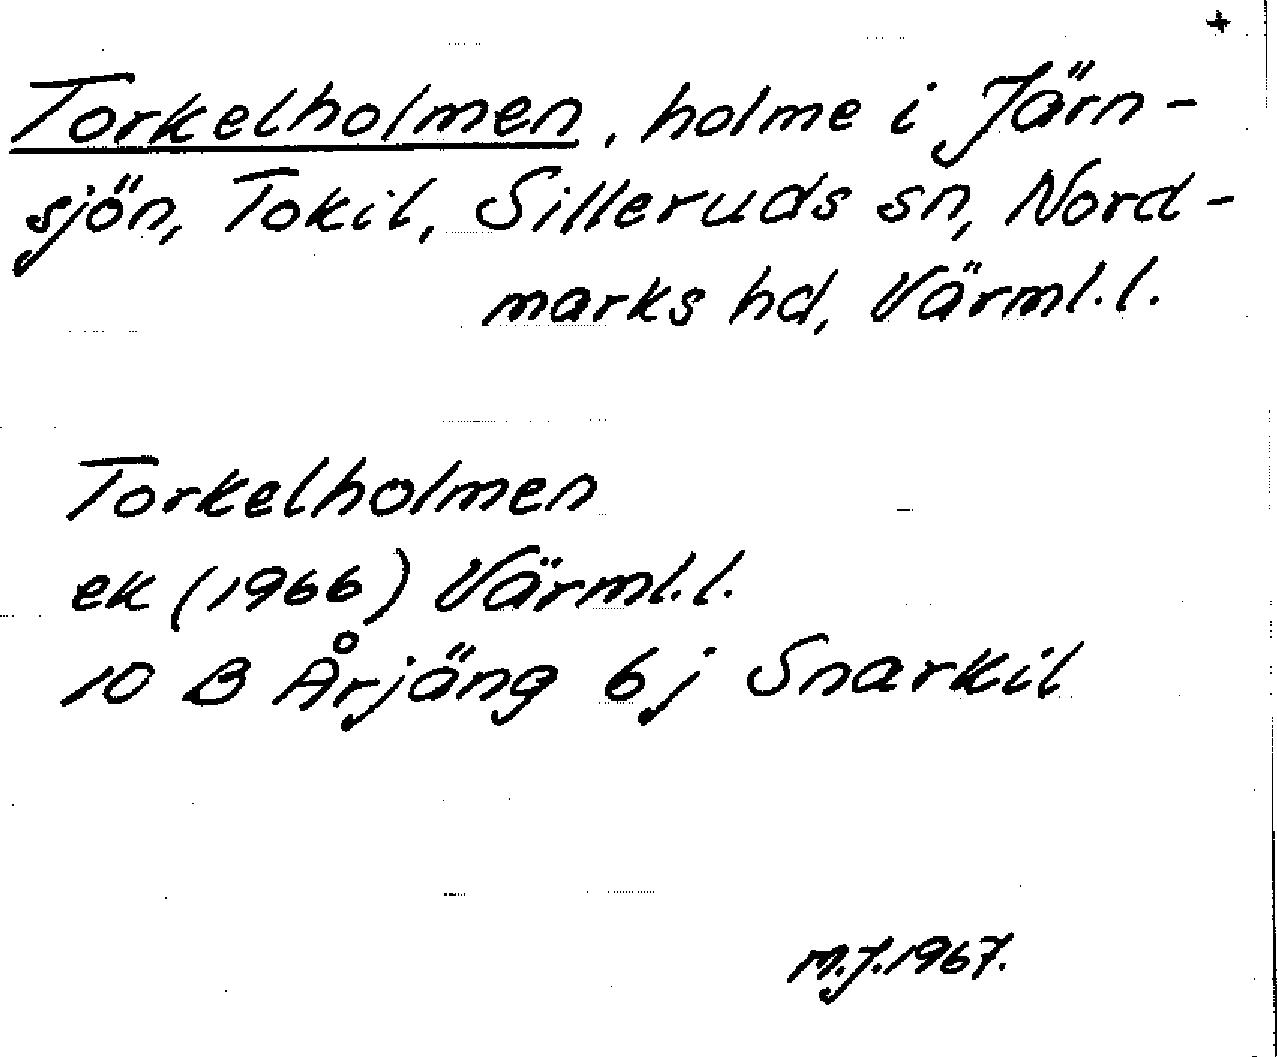 +
Torkelholmen, holme i Järn-
sjön, Tokil, Silleruds sn, Nord-
marks hd, Värml.l.
Torkelholmen
ek (1966) Värml.l.
10 B Årjäng 6j Snarkil
M.J.1967.